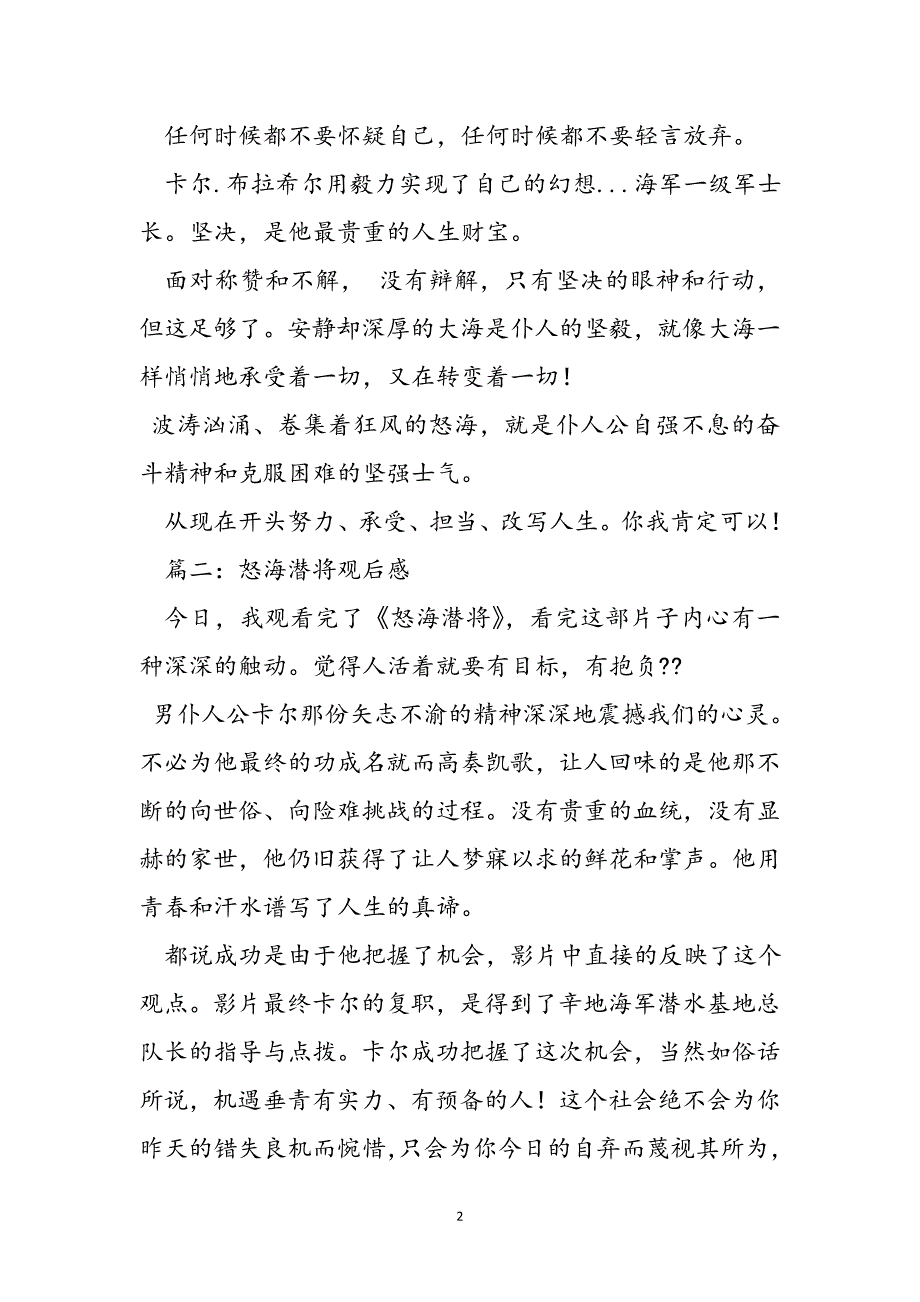 任何时候都不要怀疑自己，任何时候都不要轻言放弃。
卡尔.布拉希尔用毅力实现了自己的幻想...海军一级军士
长。坚决，是他最贵重的人生财宝。
面对称赞和不解， 没有辩解，只有坚决的眼神和行动，
但这足够了。安静却深厚的大海是仆人的坚毅，就像大海一
样悄悄地承受着一切，又在转变着一切！
波涛汹涌、卷集着狂风的怒海，就是仆人公自强不息的奋
斗精神和克服困难的坚强士气。
从现在开头努力、承受、担当、改写人生。你我肯定可以！
篇二：怒海潜将观后感
今日，我观看完了《怒海潜将》，看完这部片子内心有一
种深深的触动。觉得人活着就要有目标，有抱负??
男仆人公卡尔那份矢志不渝的精神深深地震撼我们的心灵。
不必为他最终的功成名就而高奏凯歌，让人回味的是他那不
断的向世俗、向险难挑战的过程。没有贵重的血统，没有显
赫的家世，他仍旧获得了让人梦寐以求的鲜花和掌声。他用
青春和汗水谱写了人生的真谛。
都说成功是由于他把握了机会，影片中直接的反映了这个
观点。影片最终卡尔的复职，是得到了辛地海军潜水基地总
队长的指导与点拨。卡尔成功把握了这次机会，当然如俗话
所说，机遇垂青有实力、有预备的人！这个社会绝不会为你
昨天的错失良机而惋惜,只会为你今日的自弃而蔑视其所为，
2